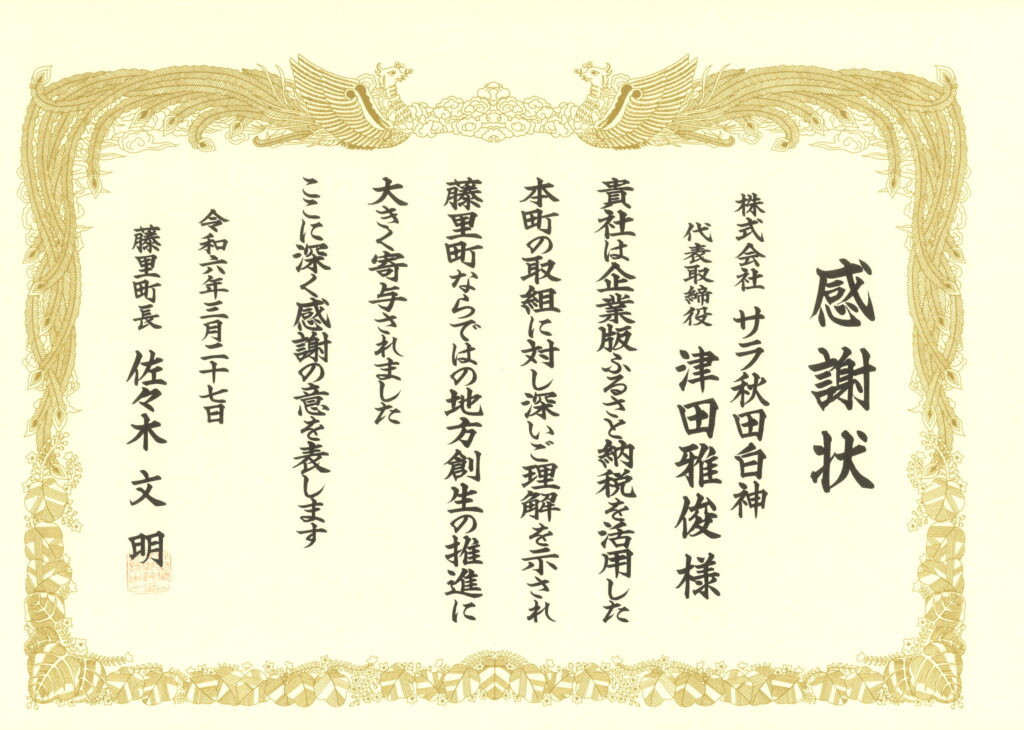 感謝状
株式会社 サラ秋田白神
代表取締役 津田雅俊 様
貴社は企業版ふるさと納税を活用した
本町の取組に対し深いご理解を示され
藤里町ならではの地方創生の推進に
大きく寄与されました
ここに深く感謝の意を表します
令和六年三月二十七日
藤里町長 佐々木文明